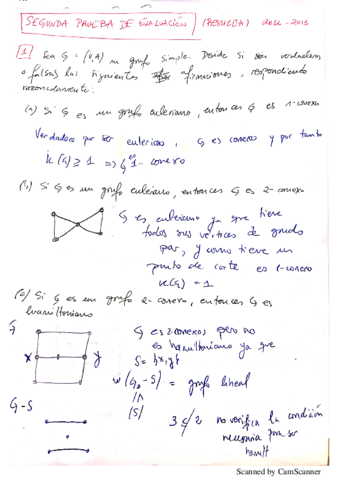 SEGUNDA PRUEBA DE EVALUACIÓN (RESUELTA) 2012-2013
1 Sea G = (V,A) un grafo simple. Decide si son verdaderas
o falsas las siguientes afirmaciones, respondiendo
razonadamente:
(a) Si G es un grafo euleriano, entonces G es 1-conexo
Verdadera por ser euleriano, G es conexo y por tanto
K(G) ≥ 1 => G es 1-conexo
(b) Si G es un grafo euleriano, entonces G es 2-conexo
G es euleriano ya que tiene
todos sus vértices de grado
par, y como tiene un
punto de corte es 1-conexo
K(G) = 1
(c) Si G es un grafo 2-conexo, entonces G es
hamiltoniano
G
G es 2-conexo pero no
es hamiltoniano ya que
x y
S = {x,y}
w(G-S) = grafo
|S|
G-S
3 ≤ 2 no verifica la condición
necesaria para ser
hamilt
Scanned by CamScanner